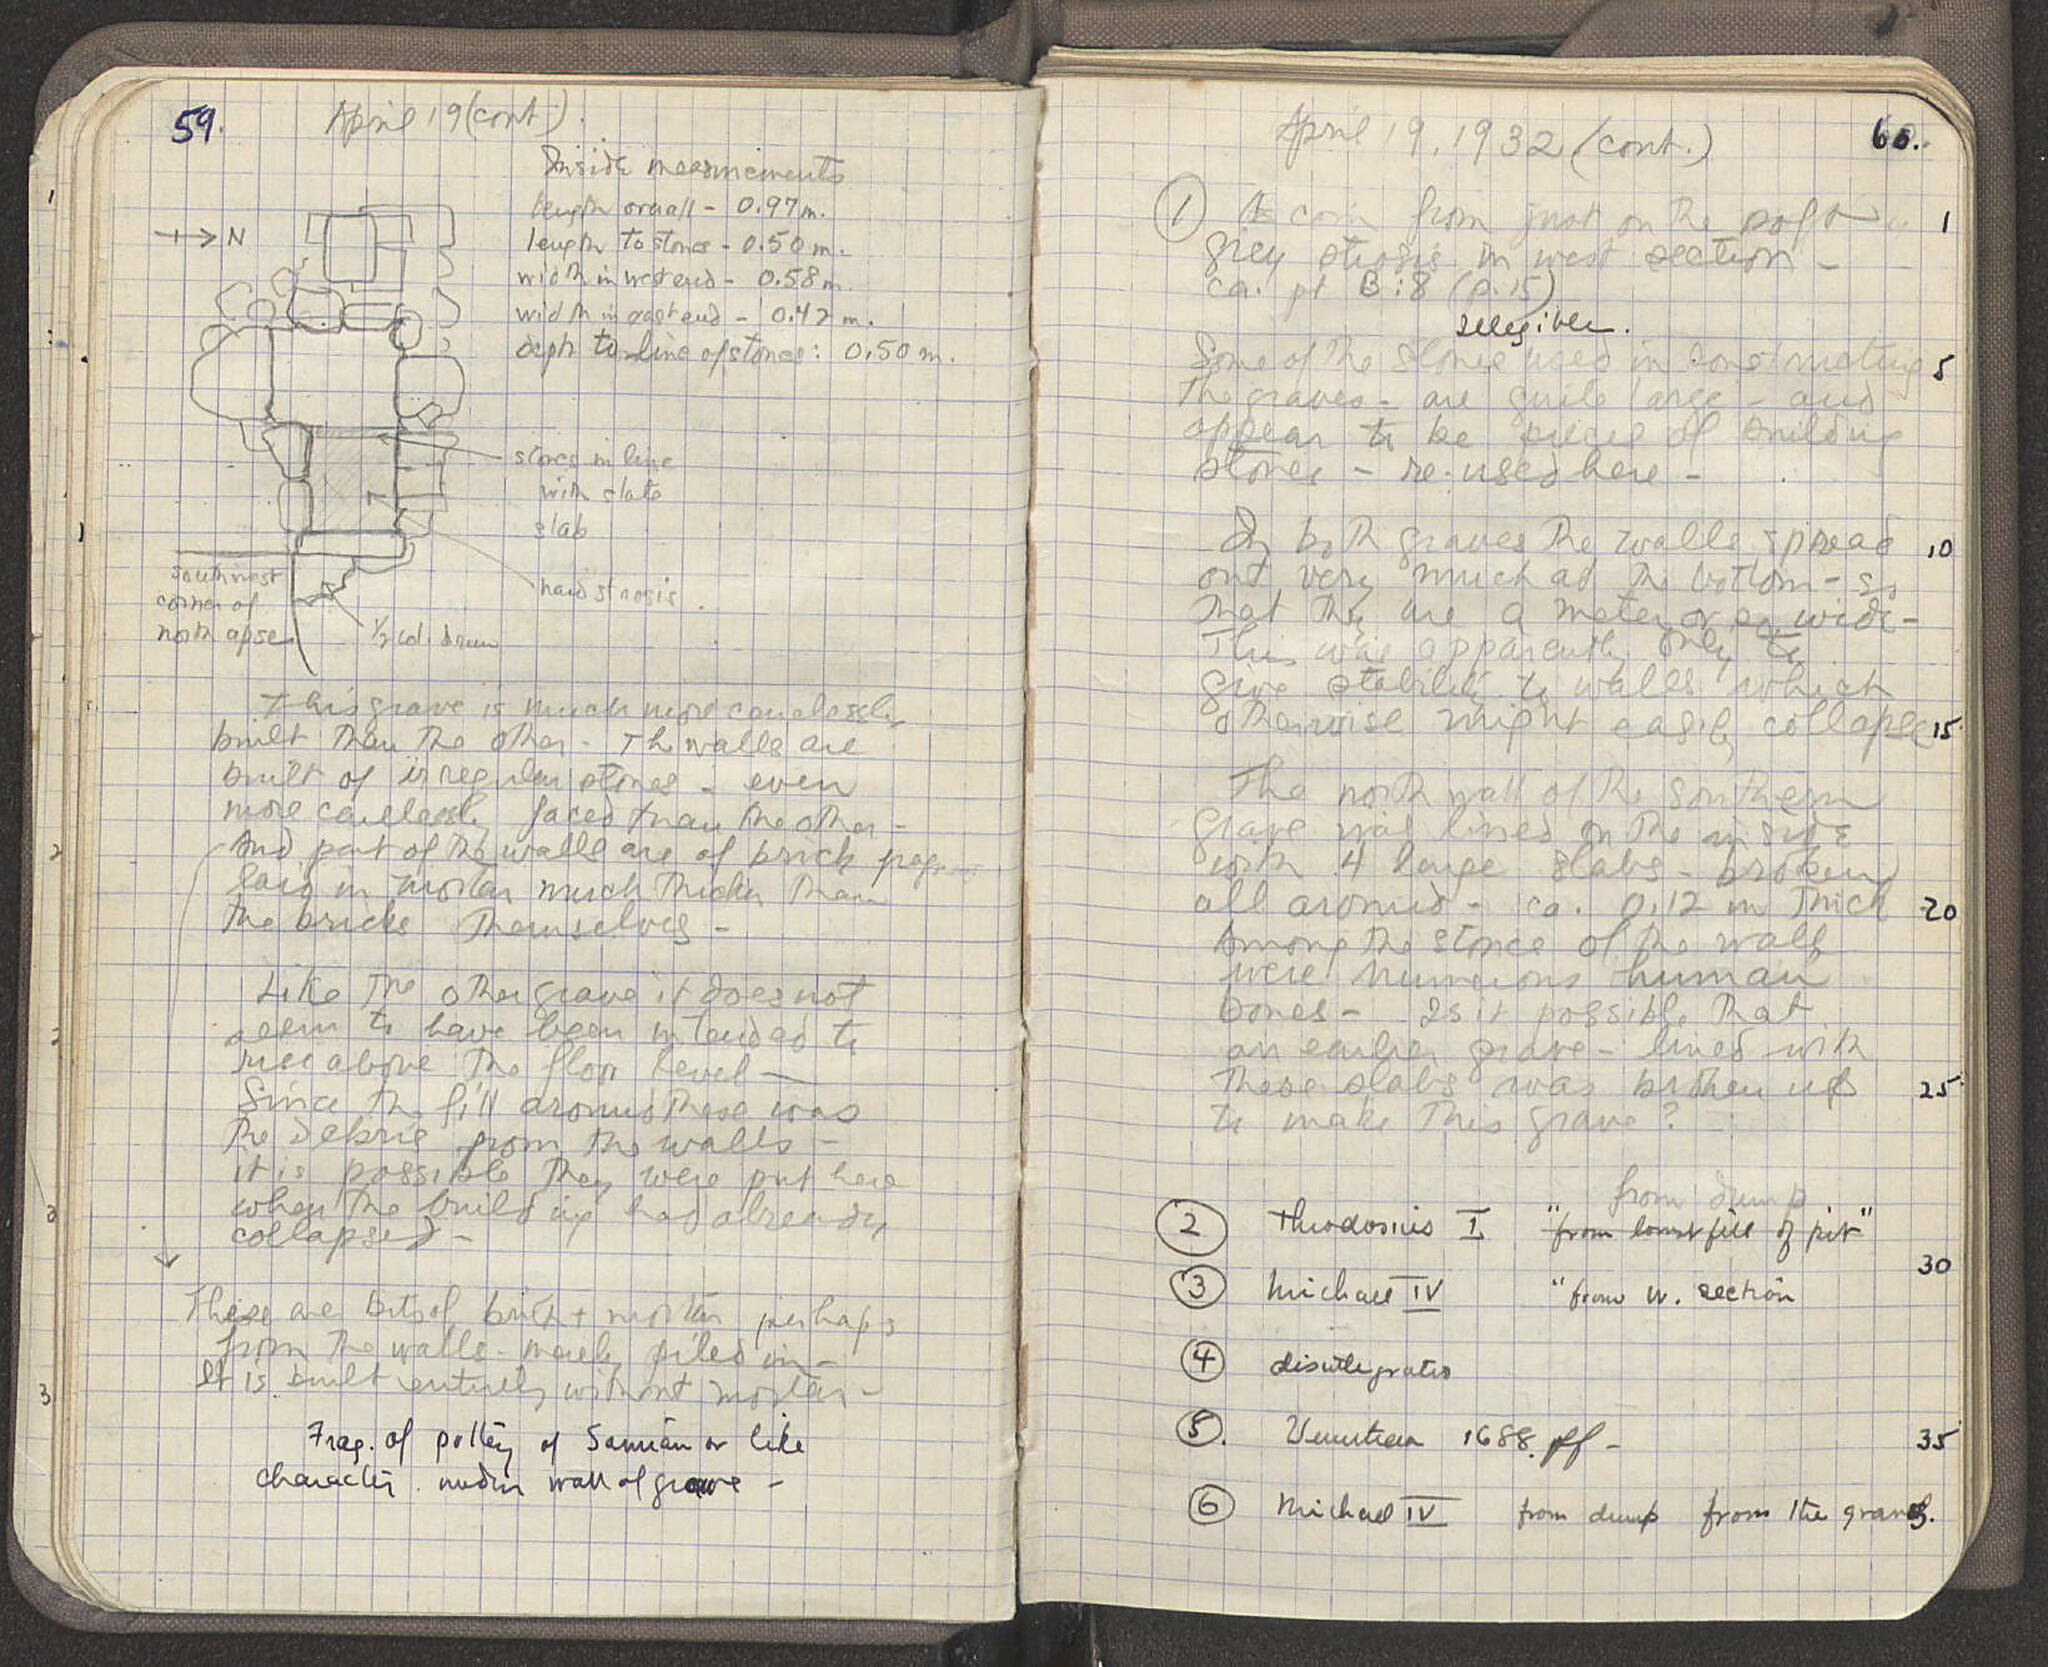 59.
April 19 (cont.)
Inside measurements
length overall - 0.97 m.
length to stones - 0.50 m.
width in west end - 0.58 m.
width in east end - 0.42 m.
depth to line of stones: 0.50 m.
N
stones in line
with slate
slab
hard strosis.
southwest
corner of
north apse.
1/2 col. drum
This grave is much more carelessly
built than the other - The walls are
built of irregular stones - even
more carelessly faced than the other -
And part of the walls are of brick
laid in mortar much thicker than
the bricks themselves -
Like the other grave it does not
seem to have been intended to
rise above the floor level -
Since the fill around these was
the debris from the walls -
it is possible they were put here
when the building had already
collapsed -
These are bits of brick + mortar perhaps
from the walls - merely piled in -
It is built entirely without mortar -
Frag. of pottery of Samian or like
character. under wall of grave -
1
2
2
3
3
April 19, 1932 (cont.)
60.
1 A coin from just on the soft 1
grey strosis in west section -
ca. pt B:8 (p.15)
illegible.
Some of the stones used in constructing 5
the graves - are quite large - and
appear to be pieces of building
stones - re-used here -
In both graves the walls spread 10
out very much at the bottom - so
that they are a meter or so wide -
This was apparently only to
give stability to walls which
otherwise might easily collapse 15
The north wall of the southern
grave was lined on the inside
with 4 large slabs - broken
all around - ca. 0.12 m thick 20
Among the stones of the walls
were numerous human
bones - Is it possible that
an earlier grave - lined with
these slabs was broken up 25
to make this grave?
from dump
2 Theodosius I "from lowest fill of pit"
30
3 Michael IV "from W. section
4 disintegrated
5. Venetian 1688 ff - 35
6 Michael IV from dump from the graves.